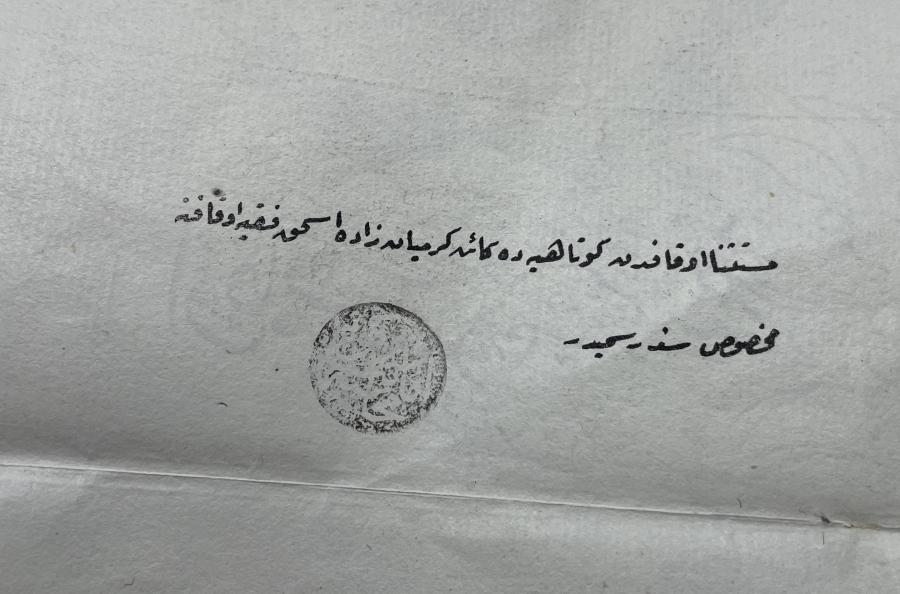 مستثنا اوقافدن كوتاهيه ده كائن كرميان زاده اسحق فقيه اوقافنه
مخصوص سند رسميدر